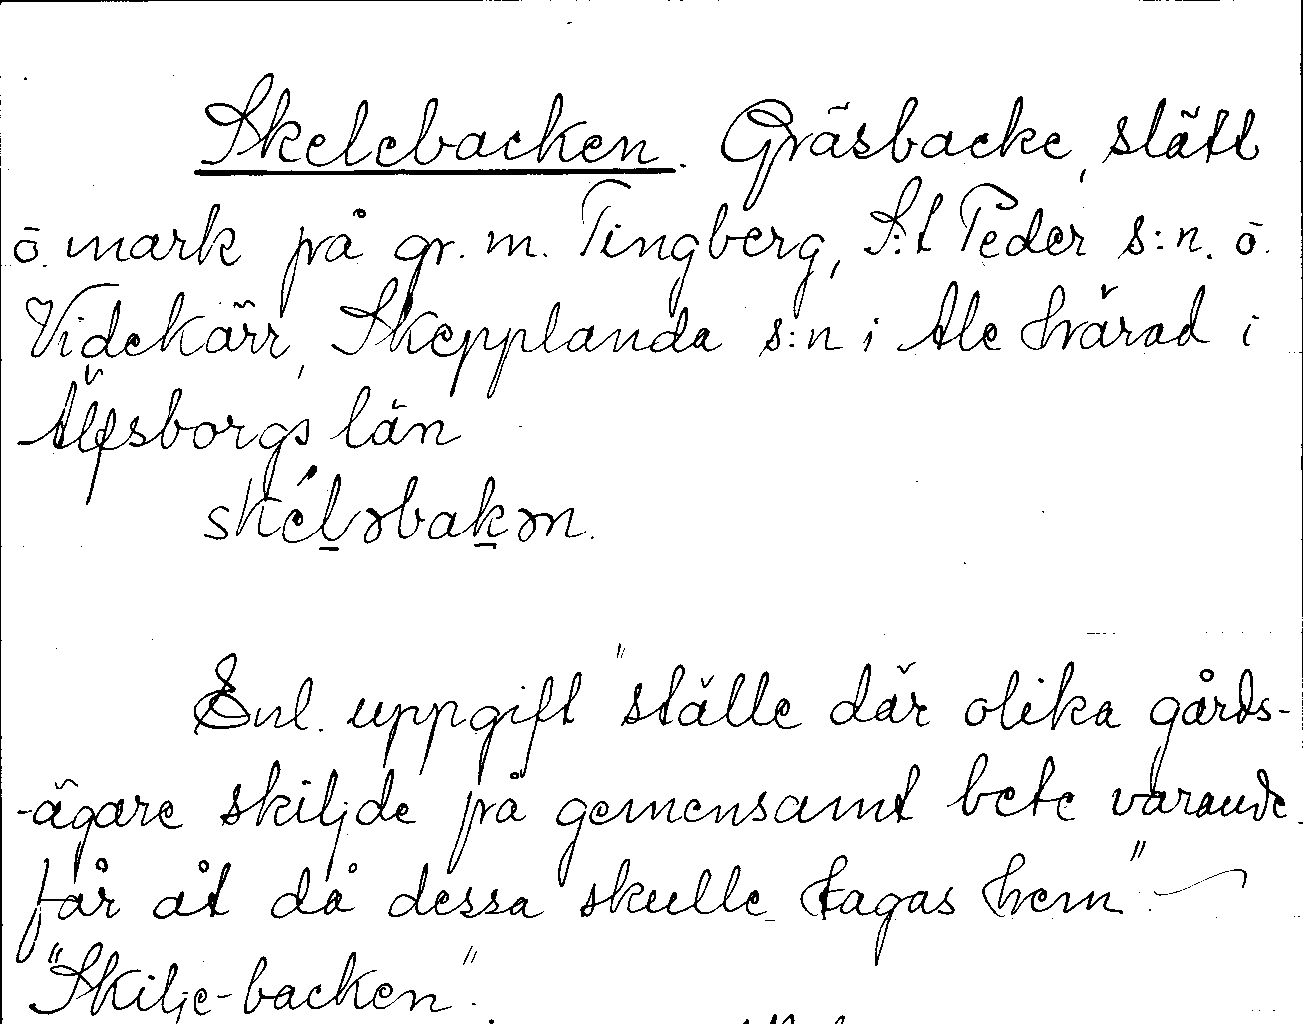 Skelebacken. Gräsbacke, slätt
o. mark på gr. m. Tingberg, S:t Peder s:n. o.
Videkärr, Skepplanda s:n i Ale härad i
Älfsborgs län
skéləbakən.
Enl. uppgift "ställe där olika gårds-
-ägare skiljde på gemensamt bete varande
får åt då dessa skulle tagas hem". —
"Skilje-backen".